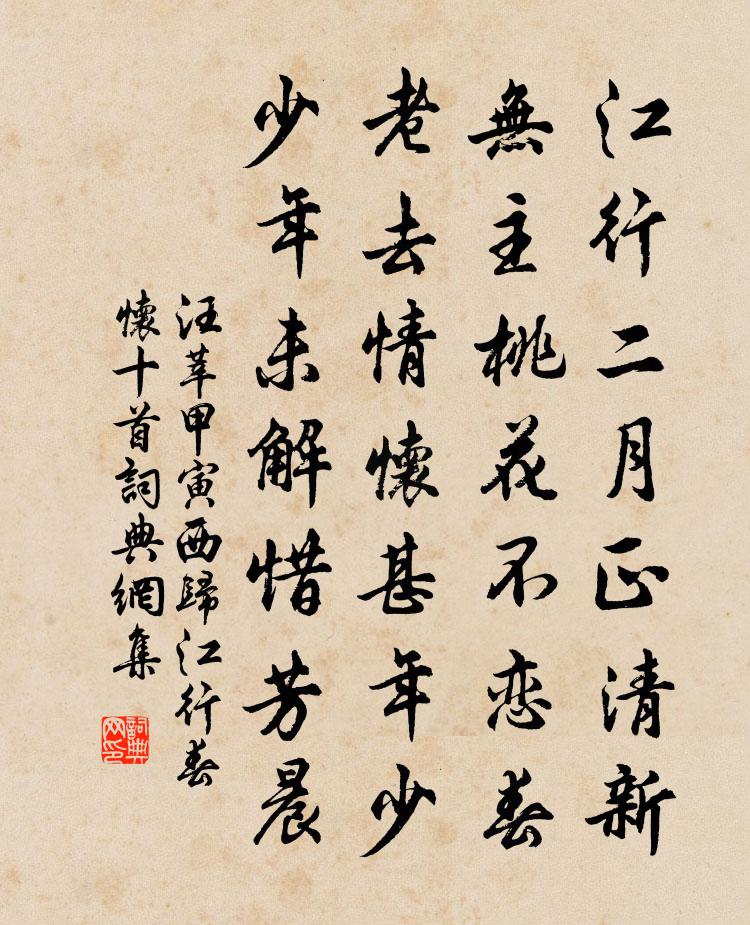 江行二月正清新
無主桃花不恋春
老去情懷甚年少
少年未解惜芳晨
汪莘甲寅西歸江行春
懷十首詞典網集
詞典
网印